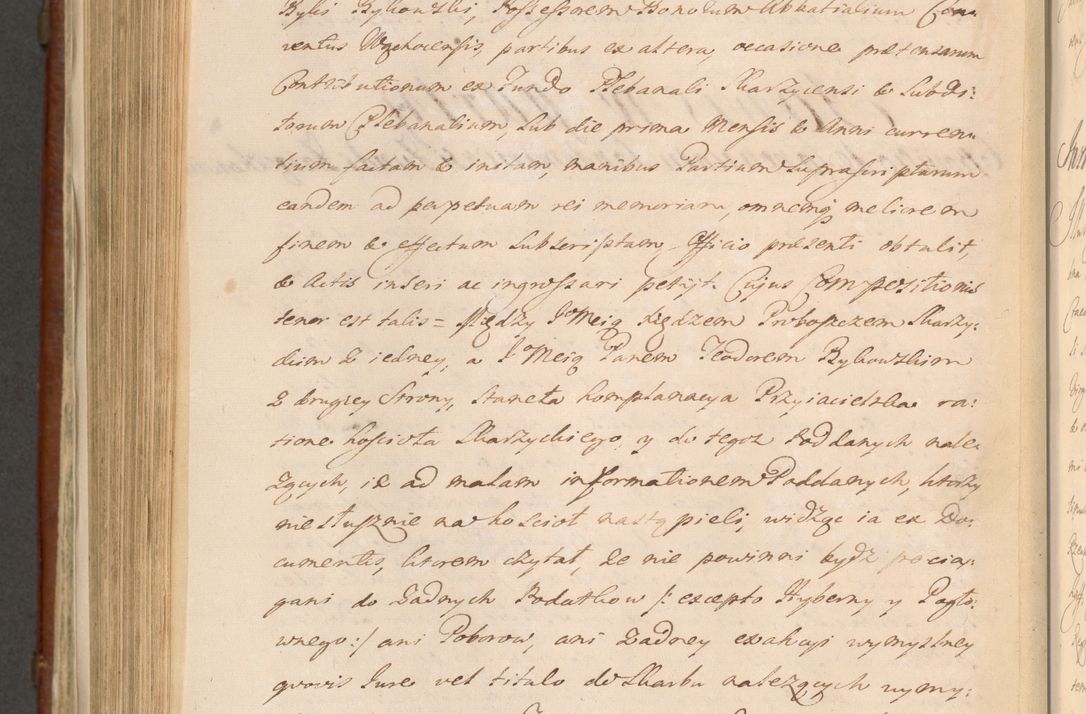 Byki Bykowski, Possessorem Bonorum Abbatialium Con
ventus Wąchocensis, partibus ex altera, occasione prætensarum
Contributionum ex Fundo Plebanali Skarzycensi & Subdi:
torum Plebanalium, sub die prima Mensis & Anni curren
tium factam & initam, manibus Partium suprascriptarum
eandem ad perpetuam rei memoriam, omnemq meliorem
finem & effectum subscriptam, Officio præsenti obtulit,
& Actis inseri ac ingrossari petyt. Cujus Compositionis
tenor est talis = Między JoMcią Xiędzem Proboszczem Skarzy:
ckim z iedney, a JoMcią Panem Teodorem Bykowskim
z drugiey Strony, stanęła komplanacya Przyiacielska ra:
tione kościoła Skarzyckiego, y do tegoz Poddanych nale
zących, iż ad malam informationem Poddanych, ktorzy
niesłusznie na kościoł nastąpieli, widząc ia ex Do:
cumentis, ktorem czytał, że nie powinni bydz pocią:
gani do Zadnych Podatkow /: excepto Hyberny y Pogło:
wnego :/ ani Poborow, ani żadney exakcyi wymyslney
quovis Jure vel titulo do Skarbu nalezących wymy: